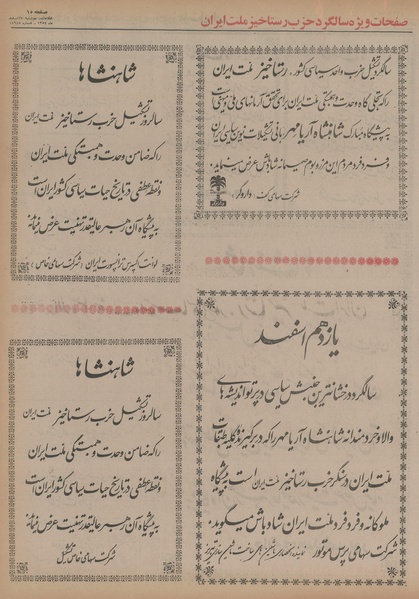 صفحات ویژه سالگرد حزب رستاخیز ملت ایران
صفحه ۱۵
شاهنشاها
سالروز تشکیل حزب رستاخیز ملت ایران
را که ضامن وحدت و همبستگی ملت ایران
و نقطه عطفی در تاریخ حیات سیاسی کشور ایران است
به پیشگاه آن رهبر عالیقدر تهنیت عرض مینمائد
لوانت اکسپرس ترانسپورت ایران (شرکت سهامی خاص)
سالگرد تشکیل حزب واحد سیاسی کشور، رستاخیز ملت ایران
را که تجلی گاه وحدت و همبستگی ملت ایران برای تحقق آرمانهای ملی و میهنی است
به پیشگاه مبارک شاهنشاه آریامهر بانی تشکیلات نوین سیاسی ایران
و فرد فرد مردم این مرز و بوم صمیمانه شادباش عرض مینماید.
شرکت سهامی کف (داروگر)
شاهنشاها
سالروز تشکیل حزب رستاخیز ملت ایران
را که ضامن وحدت و همبستگی ملت ایران
و نقطه عطفی در تاریخ حیات سیاسی کشور ایران است
به پیشگاه آن رهبر عالیقدر تهنیت عرض مینمائد
شرکت سهامی خاص تشکیل
یازدهم اسفند
سالگرد درخشانترین جنبش سیاسی در پرتو اندیشه های
والا و خردمندانه شاهنشاه آریامهر را که در برگیرنده کلیه طبقات
ملت ایران در سنگر حزب رستاخیز ملت ایران است به پیشگاه
ملوکانه و فرد فرد ملت ایران شادباش میگوید.
شرکت سهامی پرس موتور